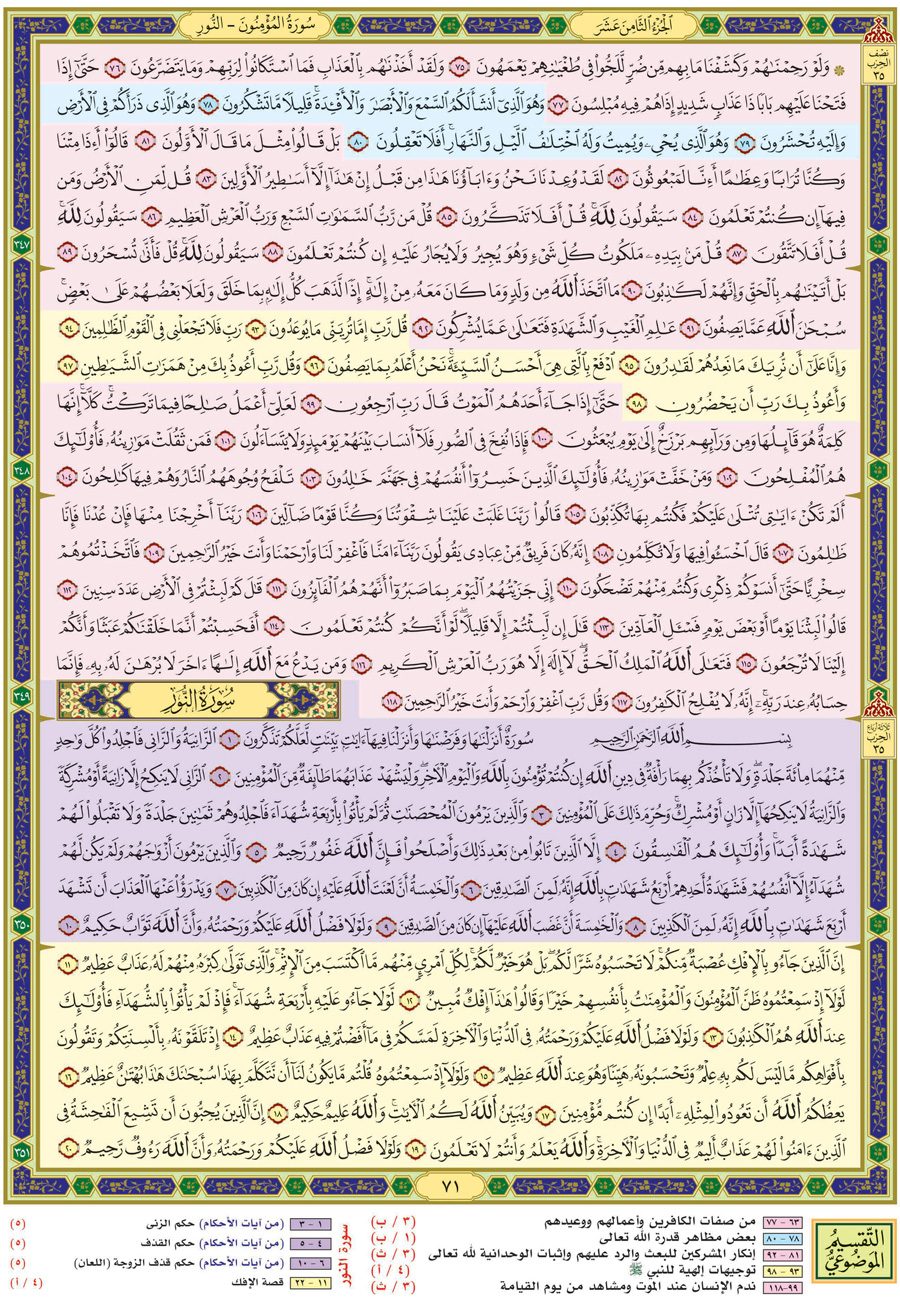 الجزء الثامن عشر
سورة المؤمنون - النور
نصف الحزب ٣٥
۞ وَلَوْ رَحِمْنَٰهُمْ وَكَشَفْنَا مَا بِهِم مِّن ضُرٍّ لَّلَجُّوا۟ فِى طُغْيَٰنِهِمْ يَعْمَهُونَ ٧٥ وَلَقَدْ أَخَذْنَٰهُم بِٱلْعَذَابِ فَمَا ٱسْتَكَانُوا۟ لِرَبِّهِمْ وَمَا يَتَضَرَّعُونَ ٧٦ حَتَّىٰٓ إِذَا
فَتَحْنَا عَلَيْهِم بَابًا ذَا عَذَابٍ شَدِيدٍ إِذَا هُمْ فِيهِ مُبْلِسُونَ ٧٧ وَهُوَ ٱلَّذِىٓ أَنشَأَ لَكُمُ ٱلسَّمْعَ وَٱلْأَبْصَٰرَ وَٱلْأَفْـِٔدَةَ ۚ قَلِيلًا مَّا تَشْكُرُونَ ٧٨ وَهُوَ ٱلَّذِى ذَرَأَكُمْ فِى ٱلْأَرْضِ
وَإِلَيْهِ تُحْشَرُونَ ٧٩ وَهُوَ ٱلَّذِى يُحْىِۦ وَيُمِيتُ وَلَهُ ٱخْتِلَٰفُ ٱلَّيْلِ وَٱلنَّهَارِ ۚ أَفَلَا تَعْقِلُونَ ٨٠ بَلْ قَالُوا۟ مِثْلَ مَا قَالَ ٱلْأَوَّلُونَ ٨١ قَالُوٓا۟ أَءِذَا مِتْنَا
وَكُنَّا تُرَابًا وَعِظَٰمًا أَءِنَّا لَمَبْعُوثُونَ ٨٢ لَقَدْ وُعِدْنَا نَحْنُ وَءَابَآؤُنَا هَٰذَا مِن قَبْلُ إِنْ هَٰذَآ إِلَّآ أَسَٰطِيرُ ٱلْأَوَّلِينَ ٨٣ قُل لِّمَنِ ٱلْأَرْضُ وَمَن
فِيهَآ إِن كُنتُمْ تَعْلَمُونَ ٨٤ سَيَقُولُونَ لِلَّهِ ۚ قُلْ أَفَلَا تَذَكَّرُونَ ٨٥ قُلْ مَن رَّبُّ ٱلسَّمَٰوَٰتِ ٱلسَّبْعِ وَرَبُّ ٱلْعَرْشِ ٱلْعَظِيمِ ٨٦ سَيَقُولُونَ لِلَّهِ ۚ
قُلْ أَفَلَا تَتَّقُونَ ٨٧ قُلْ مَنۢ بِيَدِهِۦ مَلَكُوتُ كُلِّ شَىْءٍ وَهُوَ يُجِيرُ وَلَا يُجَارُ عَلَيْهِ إِن كُنتُمْ تَعْلَمُونَ ٨٨ سَيَقُولُونَ لِلَّهِ ۚ قُلْ فَأَنَّىٰ تُسْحَرُونَ ٨٩
٣٤٧
بَلْ أَتَيْنَٰهُم بِٱلْحَقِّ وَإِنَّهُمْ لَكَٰذِبُونَ ٩٠ مَا ٱتَّخَذَ ٱللَّهُ مِن وَلَدٍ وَمَا كَانَ مَعَهُۥ مِنْ إِلَٰهٍ ۚ إِذًا لَّذَهَبَ كُلُّ إِلَٰهٍۭ بِمَا خَلَقَ وَلَعَلَا بَعْضُهُمْ عَلَىٰ بَعْضٍ ۚ
سُبْحَٰنَ ٱللَّهِ عَمَّا يَصِفُونَ ٩١ عَٰلِمِ ٱلْغَيْبِ وَٱلشَّهَٰدَةِ فَتَعَٰلَىٰ عَمَّا يُشْرِكُونَ ٩٢ قُل رَّبِّ إِمَّا تُرِيَنِّى مَا يُوعَدُونَ ٩٣ رَبِّ فَلَا تَجْعَلْنِى فِى ٱلْقَوْمِ ٱلظَّٰلِمِينَ ٩٤
وَإِنَّا عَلَىٰٓ أَن نُّرِيَكَ مَا نَعِدُهُمْ لَقَٰدِرُونَ ٩٥ ٱدْفَعْ بِٱلَّتِى هِىَ أَحْسَنُ ٱلسَّيِّئَةَ ۚ نَحْنُ أَعْلَمُ بِمَا يَصِفُونَ ٩٦ وَقُل رَّبِّ أَعُوذُ بِكَ مِنْ هَمَزَٰتِ ٱلشَّيَٰطِينِ ٩٧
وَأَعُوذُ بِكَ رَبِّ أَن يَحْضُرُونِ ٩٨ حَتَّىٰٓ إِذَا جَآءَ أَحَدَهُمُ ٱلْمَوْتُ قَالَ رَبِّ ٱرْجِعُونِ ٩٩ لَعَلِّىٓ أَعْمَلُ صَٰلِحًا فِيمَا تَرَكْتُ ۚ كَلَّآ ۚ إِنَّهَا
كَلِمَةٌ هُوَ قَآئِلُهَا ۖ وَمِن وَرَآئِهِم بَرْزَخٌ إِلَىٰ يَوْمِ يُبْعَثُونَ ١٠٠ فَإِذَا نُفِخَ فِى ٱلصُّورِ فَلَآ أَنسَابَ بَيْنَهُمْ يَوْمَئِذٍ وَلَا يَتَسَآءَلُونَ ١٠١ فَمَن ثَقُلَتْ مَوَٰزِينُهُۥ فَأُو۟لَٰٓئِكَ
هُمُ ٱلْمُفْلِحُونَ ١٠٢ وَمَنْ خَفَّتْ مَوَٰزِينُهُۥ فَأُو۟لَٰٓئِكَ ٱلَّذِينَ خَسِرُوٓا۟ أَنفُسَهُمْ فِى جَهَنَّمَ خَٰلِدُونَ ١٠٣ تَلْفَحُ وُجُوهَهُمُ ٱلنَّارُ وَهُمْ فِيهَا كَٰلِحُونَ ١٠٤
٣٤٨
أَلَمْ تَكُنْ ءَايَٰتِى تُتْلَىٰ عَلَيْكُمْ فَكُنتُم بِهَا تُكَذِّبُونَ ١٠٥ قَالُوا۟ رَبَّنَا غَلَبَتْ عَلَيْنَا شِقْوَتُنَا وَكُنَّا قَوْمًا ضَآلِّينَ ١٠٦ رَبَّنَآ أَخْرِجْنَا مِنْهَا فَإِنْ عُدْنَا فَإِنَّا
ظَٰلِمُونَ ١٠٧ قَالَ ٱخْسَـُٔوا۟ فِيهَا وَلَا تُكَلِّمُونِ ١٠٨ إِنَّهُۥ كَانَ فَرِيقٌ مِّنْ عِبَادِى يَقُولُونَ رَبَّنَآ ءَامَنَّا فَٱغْفِرْ لَنَا وَٱرْحَمْنَا وَأَنتَ خَيْرُ ٱلرَّٰحِمِينَ ١٠٩ فَٱتَّخَذْتُمُوهُمْ
سِخْرِيًّا حَتَّىٰٓ أَنسَوْكُمْ ذِكْرِى وَكُنتُم مِّنْهُمْ تَضْحَكُونَ ١١٠ إِنِّى جَزَيْتُهُمُ ٱلْيَوْمَ بِمَا صَبَرُوٓا۟ أَنَّهُمْ هُمُ ٱلْفَآئِزُونَ ١١١ قَٰلَ كَمْ لَبِثْتُمْ فِى ٱلْأَرْضِ عَدَدَ سِنِينَ ١١٢
قَالُوا۟ لَبِثْنَا يَوْمًا أَوْ بَعْضَ يَوْمٍ فَسْـَٔلِ ٱلْعَآدِّينَ ١١٣ قَٰلَ إِن لَّبِثْتُمْ إِلَّا قَلِيلًا ۖ لَّوْ أَنَّكُمْ كُنتُمْ تَعْلَمُونَ ١١٤ أَفَحَسِبْتُمْ أَنَّمَا خَلَقْنَٰكُمْ عَبَثًا وَأَنَّكُمْ
إِلَيْنَا لَا تُرْجَعُونَ ١١٥ فَتَعَٰلَى ٱللَّهُ ٱلْمَلِكُ ٱلْحَقُّ ۖ لَآ إِلَٰهَ إِلَّا هُوَ رَبُّ ٱلْعَرْشِ ٱلْكَرِيمِ ١١٦ وَمَن يَدْعُ مَعَ ٱللَّهِ إِلَٰهًا ءَاخَرَ لَا بُرْهَٰنَ لَهُۥ بِهِۦ فَإِنَّمَا
حِسَابُهُۥ عِندَ رَبِّهِۦٓ ۚ إِنَّهُۥ لَا يُفْلِحُ ٱلْكَٰفِرُونَ ١١٧ وَقُل رَّبِّ ٱغْفِرْ وَٱرْحَمْ وَأَنتَ خَيْرُ ٱلرَّٰحِمِينَ ١١٨
٣٤٩
سورة النور
ثلاثة أرباع الحزب ٣٥
بِسْمِ ٱللَّهِ ٱلرَّحْمَٰنِ ٱلرَّحِيمِ سُورَةٌ أَنزَلْنَٰهَا وَفَرَضْنَٰهَا وَأَنزَلْنَا فِيهَآ ءَايَٰتٍۭ بَيِّنَٰتٍ لَّعَلَّكُمْ تَذَكَّرُونَ ١ ٱلزَّانِيَةُ وَٱلزَّانِى فَٱجْلِدُوا۟ كُلَّ وَٰحِدٍ
مِّنْهُمَا مِا۟ئَةَ جَلْدَةٍ ۖ وَلَا تَأْخُذْكُم بِهِمَا رَأْفَةٌ فِى دِينِ ٱللَّهِ إِن كُنتُمْ تُؤْمِنُونَ بِٱللَّهِ وَٱلْيَوْمِ ٱلْءَاخِرِ ۖ وَلْيَشْهَدْ عَذَابَهُمَا طَآئِفَةٌ مِّنَ ٱلْمُؤْمِنِينَ ٢ ٱلزَّانِى لَا يَنكِحُ إِلَّا زَانِيَةً أَوْ مُشْرِكَةً
وَٱلزَّانِيَةُ لَا يَنكِحُهَآ إِلَّا زَانٍ أَوْ مُشْرِكٌ ۚ وَحُرِّمَ ذَٰلِكَ عَلَى ٱلْمُؤْمِنِينَ ٣ وَٱلَّذِينَ يَرْمُونَ ٱلْمُحْصَنَٰتِ ثُمَّ لَمْ يَأْتُوا۟ بِأَرْبَعَةِ شُهَدَآءَ فَٱجْلِدُوهُمْ ثَمَٰنِينَ جَلْدَةً وَلَا تَقْبَلُوا۟ لَهُمْ
شَهَٰدَةً أَبَدًا ۚ وَأُو۟لَٰٓئِكَ هُمُ ٱلْفَٰسِقُونَ ٤ إِلَّا ٱلَّذِينَ تَابُوا۟ مِنۢ بَعْدِ ذَٰلِكَ وَأَصْلَحُوا۟ فَإِنَّ ٱللَّهَ غَفُورٌ رَّحِيمٌ ٥ وَٱلَّذِينَ يَرْمُونَ أَزْوَٰجَهُمْ وَلَمْ يَكُن لَّهُمْ
شُهَدَآءُ إِلَّآ أَنفُسُهُمْ فَشَهَٰدَةُ أَحَدِهِمْ أَرْبَعُ شَهَٰدَٰتٍۭ بِٱللَّهِ ۙ إِنَّهُۥ لَمِنَ ٱلصَّٰدِقِينَ ٦ وَٱلْخَٰمِسَةُ أَنَّ لَعْنَتَ ٱللَّهِ عَلَيْهِ إِن كَانَ مِنَ ٱلْكَٰذِبِينَ ٧ وَيَدْرَؤُا۟ عَنْهَا ٱلْعَذَابَ أَن تَشْهَدَ
أَرْبَعَ شَهَٰدَٰتٍۭ بِٱللَّهِ ۙ إِنَّهُۥ لَمِنَ ٱلْكَٰذِبِينَ ٨ وَٱلْخَٰمِسَةَ أَنَّ غَضَبَ ٱللَّهِ عَلَيْهَآ إِن كَانَ مِنَ ٱلصَّٰدِقِينَ ٩ وَلَوْلَا فَضْلُ ٱللَّهِ عَلَيْكُمْ وَرَحْمَتُهُۥ وَأَنَّ ٱللَّهَ تَوَّابٌ حَكِيمٌ ١٠
٣٥٠
إِنَّ ٱلَّذِينَ جَآءُو بِٱلْإِفْكِ عُصْبَةٌ مِّنكُمْ ۚ لَا تَحْسَبُوهُ شَرًّا لَّكُم ۖ بَلْ هُوَ خَيْرٌ لَّكُمْ ۚ لِكُلِّ ٱمْرِئٍ مِّنْهُم مَّا ٱكْتَسَبَ مِنَ ٱلْإِثْمِ ۚ وَٱلَّذِى تَوَلَّىٰ كِبْرَهُۥ مِنْهُمْ لَهُۥ عَذَابٌ عَظِيمٌ ١١
لَّوْلَآ إِذْ سَمِعْتُمُوهُ ظَنَّ ٱلْمُؤْمِنُونَ وَٱلْمُؤْمِنَٰتُ بِأَنفُسِهِمْ خَيْرًا وَقَالُوا۟ هَٰذَآ إِفْكٌ مُّبِينٌ ١٢ لَّوْلَا جَآءُو عَلَيْهِ بِأَرْبَعَةِ شُهَدَآءَ ۚ فَإِذْ لَمْ يَأْتُوا۟ بِٱلشُّهَدَآءِ فَأُو۟لَٰٓئِكَ
عِندَ ٱللَّهِ هُمُ ٱلْكَٰذِبُونَ ١٣ وَلَوْلَا فَضْلُ ٱللَّهِ عَلَيْكُمْ وَرَحْمَتُهُۥ فِى ٱلدُّنْيَا وَٱلْءَاخِرَةِ لَمَسَّكُمْ فِى مَآ أَفَضْتُمْ فِيهِ عَذَابٌ عَظِيمٌ ١٤ إِذْ تَلَقَّوْنَهُۥ بِأَلْسِنَتِكُمْ وَتَقُولُونَ
بِأَفْوَاهِكُم مَّا لَيْسَ لَكُم بِهِۦ عِلْمٌ وَتَحْسَبُونَهُۥ هَيِّنًا وَهُوَ عِندَ ٱللَّهِ عَظِيمٌ ١٥ وَلَوْلَآ إِذْ سَمِعْتُمُوهُ قُلْتُم مَّا يَكُونُ لَنَآ أَن نَّتَكَلَّمَ بِهَٰذَا سُبْحَٰنَكَ هَٰذَا بُهْتَٰنٌ عَظِيمٌ ١٦
يَعِظُكُمُ ٱللَّهُ أَن تَعُودُوا۟ لِمِثْلِهِۦٓ أَبَدًا إِن كُنتُم مُّؤْمِنِينَ ١٧ وَيُبَيِّنُ ٱللَّهُ لَكُمُ ٱلْءَايَٰتِ ۚ وَٱللَّهُ عَلِيمٌ حَكِيمٌ ١٨ إِنَّ ٱلَّذِينَ يُحِبُّونَ أَن تَشِيعَ ٱلْفَٰحِشَةُ فِى
ٱلَّذِينَ ءَامَنُوا۟ لَهُمْ عَذَابٌ أَلِيمٌ فِى ٱلدُّنْيَا وَٱلْءَاخِرَةِ ۚ وَٱللَّهُ يَعْلَمُ وَأَنتُمْ لَا تَعْلَمُونَ ١٩ وَلَوْلَا فَضْلُ ٱللَّهِ عَلَيْكُمْ وَرَحْمَتُهُۥ وَأَنَّ ٱللَّهَ رَءُوفٌ رَّحِيمٌ ٢٠
٣٥١
٧١
التقسيم الموضوعي
٦٣ - ٧٧ من صفات الكافرين وأعمالهم ووعيدهم (٣ / ب)
٧٨ - ٨٠ بعض مظاهر قدرة الله تعالى (١ / ب)
٨١ - ٩٢ إنكار المشركين للبعث والرد عليهم وإثبات الوحدانية لله تعالى (٣ / ث)
٩٣ - ٩٨ توجيهات إلهية للنبي ﷺ (٤ / أ)
٩٩-١١٨ ندم الإنسان عند الموت ومشاهد من يوم القيامة (٣ / ث)
سورة النور
١ - ٣ (من آيات الأحكام) حكم الزنى (٥)
٤ - ٥ (من آيات الأحكام) حكم القذف (٥)
٦ - ١٠ (من آيات الأحكام) حكم قذف الزوجة (اللعان) (٥)
١١ - ٢٢ قصة الإفك (٤ / أ)